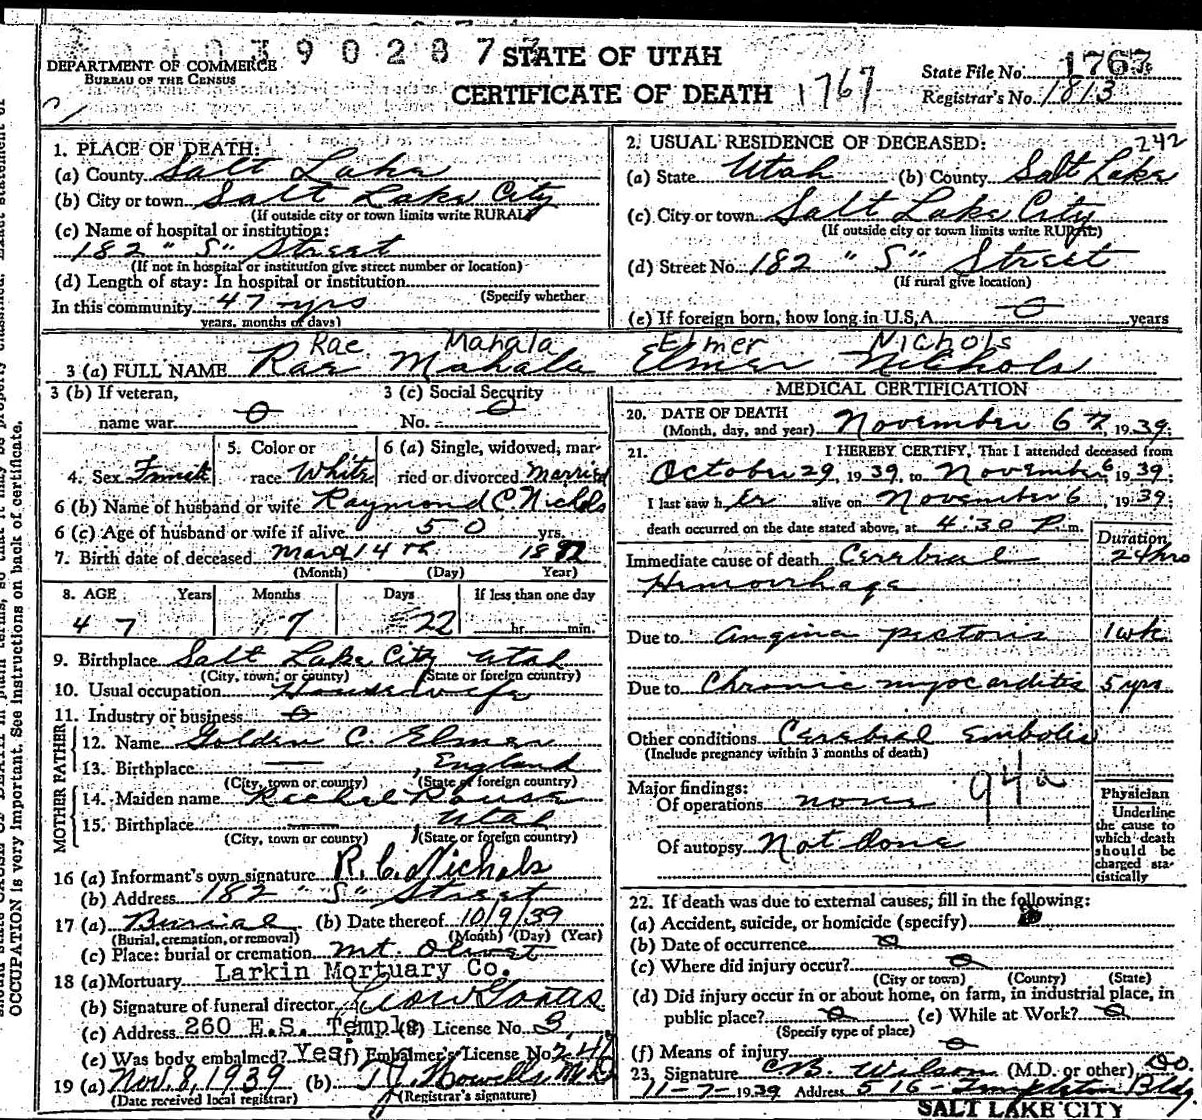 390287
STATE OF UTAH
DEPARTMENT OF COMMERCE
BUREAU OF THE CENSUS
CERTIFICATE OF DEATH 1767
State File No. 1767
Registrar's No. 1813
1. PLACE OF DEATH:
(a) County Salt Lake
(b) City or town Salt Lake City
(If outside city or town limits write RURAL)
(c) Name of hospital or institution:
182 "S" Street
(If not in hospital or institution give street number or location)
(d) Length of stay: In hospital or institution
(Specify whether
In this community 47 yrs
years, months or days)
2. USUAL RESIDENCE OF DECEASED: 242
(a) State Utah (b) County Salt Lake
(c) City or town Salt Lake City
(If outside city or town limits write RURAL)
(d) Street No. 182 "S" Street
(If rural give location)
(e) If foreign born, how long in U.S.A. 0 years
Rae Mahala Elmer Nichols
3 (a) FULL NAME Rae Mahala Elmer Nichols
3 (b) If veteran,
name war 0
3 (c) Social Security
No. 0
4. Sex Female
5. Color or
race White
6 (a) Single, widowed, mar-
ried or divorced Married
6 (b) Name of husband or wife Raymond C. Nichols
6 (c) Age of husband or wife if alive 50 yrs.
7. Birth date of deceased March 14th 1892
(Month) (Day) Year)
8. AGE Years Months Days If less than one day
47 7 22 hr. min.
9. Birthplace Salt Lake City Utah
(City, town, or county) (State or foreign country)
10. Usual occupation Housewife
11. Industry or business 0
FATHER
12. Name Golden C. Elmer
13. Birthplace — England
(City, town or county) (State or foreign country)
MOTHER
14. Maiden name Rachel
15. Birthplace — Utah
(City, town or county) (State or foreign country)
16 (a) Informant's own signature R. C. Nichols
(b) Address 182 "S" Street
17 (a) Burial (b) Date thereof 10/9/39
(Burial, cremation, or removal) (Month) (Day) (Year)
(c) Place: burial or cremation Mt. Olivet
18 (a) Mortuary Larkin Mortuary Co.
(b) Signature of funeral director
(c) Address 260 E.S. Temple (d) License No. 3
(e) Was body embalmed? Yes (f) Embalmer's License No.
19 (a) Nov. 8, 1939 (b) T.J. Howells M.D.
(Date received local registrar) (Registrar's signature)
MEDICAL CERTIFICATION
20. DATE OF DEATH
(Month, day, and year) November 6th, 1939.
21. I HEREBY CERTIFY, That I attended deceased from
October 29, 1939, to November 6, 1939.
I last saw her alive on November 6, 1939.
death occurred on the date stated above, at 4:30 P.m.
Duration
Immediate cause of death Cerebral 24 hrs
Hemorrhage
Due to angina pectoris 1 wk.
Due to Chronic myocarditis 5 yrs
Other conditions Cerebral Embolis
(Include pregnancy within 3 months of death)
Major findings:
Of operations none 94a
Of autopsy Not done
Physician
Underline
the cause to
which death
should be
charged sta-
tistically
22. If death was due to external causes, fill in the following:
(a) Accident, suicide, or homicide (specify)
(b) Date of occurrence 0
(c) Where did injury occur? 0
(City or town) (County) (State)
(d) Did injury occur in or about home, on farm, in industrial place, in
public place? 0 (e) While at Work? 0
(Specify type of place)
(f) Means of injury 0
23. Signature C.B. Wilson (M.D. or other) D.O.
11-7-1939 Address 516 Templeton Bldg
SALT LAKE CITY
OCCUPATION is very important. See instructions on back of certificate.